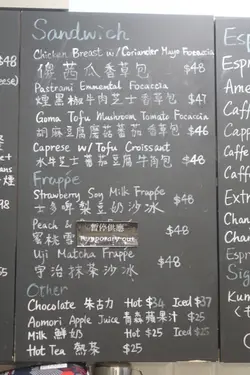 Sandwich
Chicken Breast w/ Coriander Mayo Focaccia
香草包 $48
Pastrami Emmental Focaccia
煙黑椒牛肉芝士香草包 $47
Goma Tofu Mushroom Tomato Focaccia
胡麻豆腐蘑菇蕃茄香草包 $46
Caprese w/ Tofu Croissant
水牛芝士蕃茄豆腐牛角包 $48
Frappe
Strawberry Soy Milk Frappe
士多啤梨豆奶沙冰 $48
Peach &
蜜桃 $48
暫停供應
Temporary out
Uji Matcha Frappe
宇治抹茶沙冰 $48
Other
Chocolate 朱古力 Hot $34 Iced $37
Aomori Apple Juice 青森蘋果汁 $25
Milk 鮮奶 Hot $25 Iced $25
Hot Tea 熱茶 $25